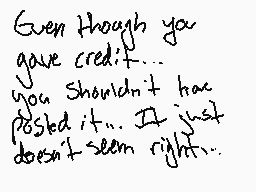 Even though you
gave credit...
you shouldn't have
posted it... It just
doesn't seem right...